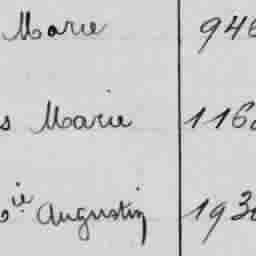 Marie 946
s Marie 116
ie Augustin 193